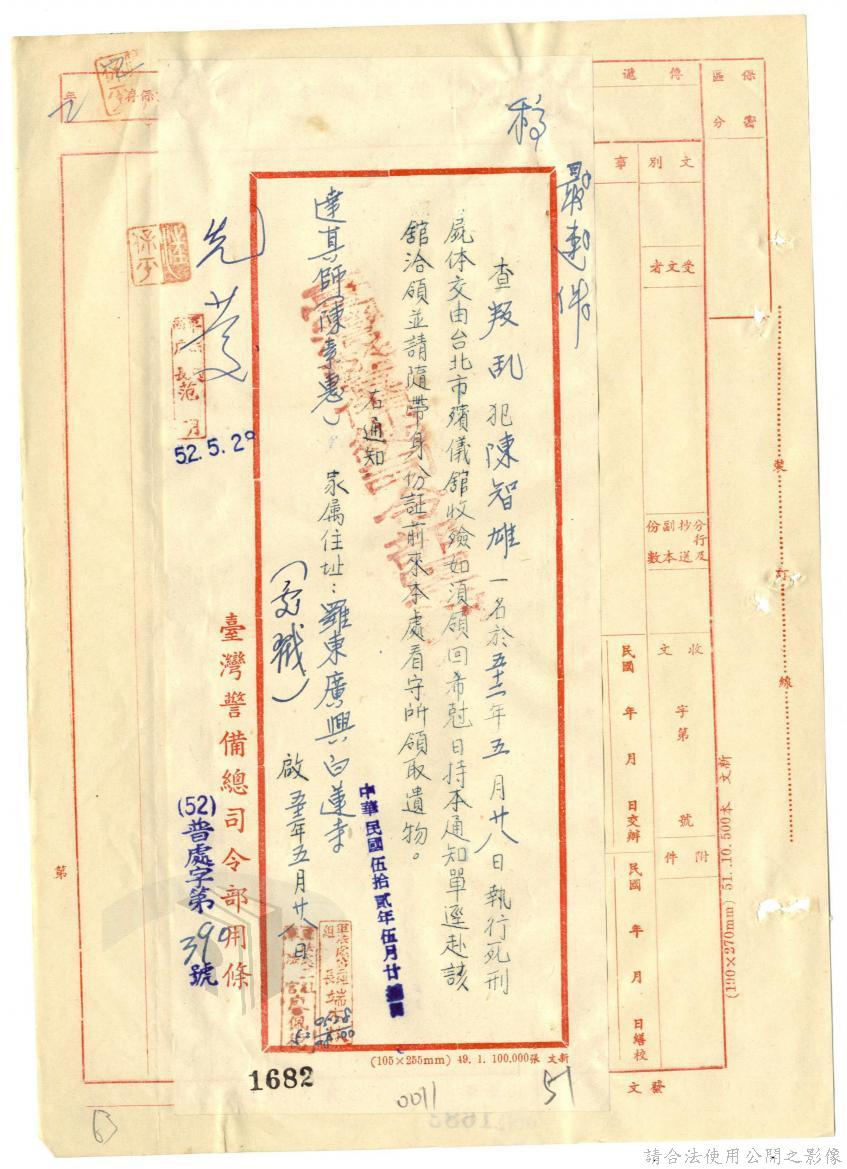 保密
區分
傳遞
文別
章
受文者
分行及
抄送
副本
份數
收文
字第
號
附件
民國
年
月
日交辦
民國
年
月
日繕校
發文
裝
訂
線
(190×270mm) 51.10.500本 文新
稿
最速件
查叛乱犯陳智雄一名於五十二年五月廿八日執行死刑
屍体交由台北市殯儀舘收殮如須領回希尅日持本通知單逕赴該
舘洽領並請隨帶身份証前來本處看守所領取遺物。
右通知
達其師(陳 惠) 家属住址:羅東廣興白蓮寺
啟 五十二年五月廿八日
中華民國伍拾貳年伍月廿
先發
52.5.29
臺灣警備總司令部用條
(52)普處字第390號
第
(105×255mm) 49.1.100,000張 文新
1682
0071
51
請合法使用公開之影像